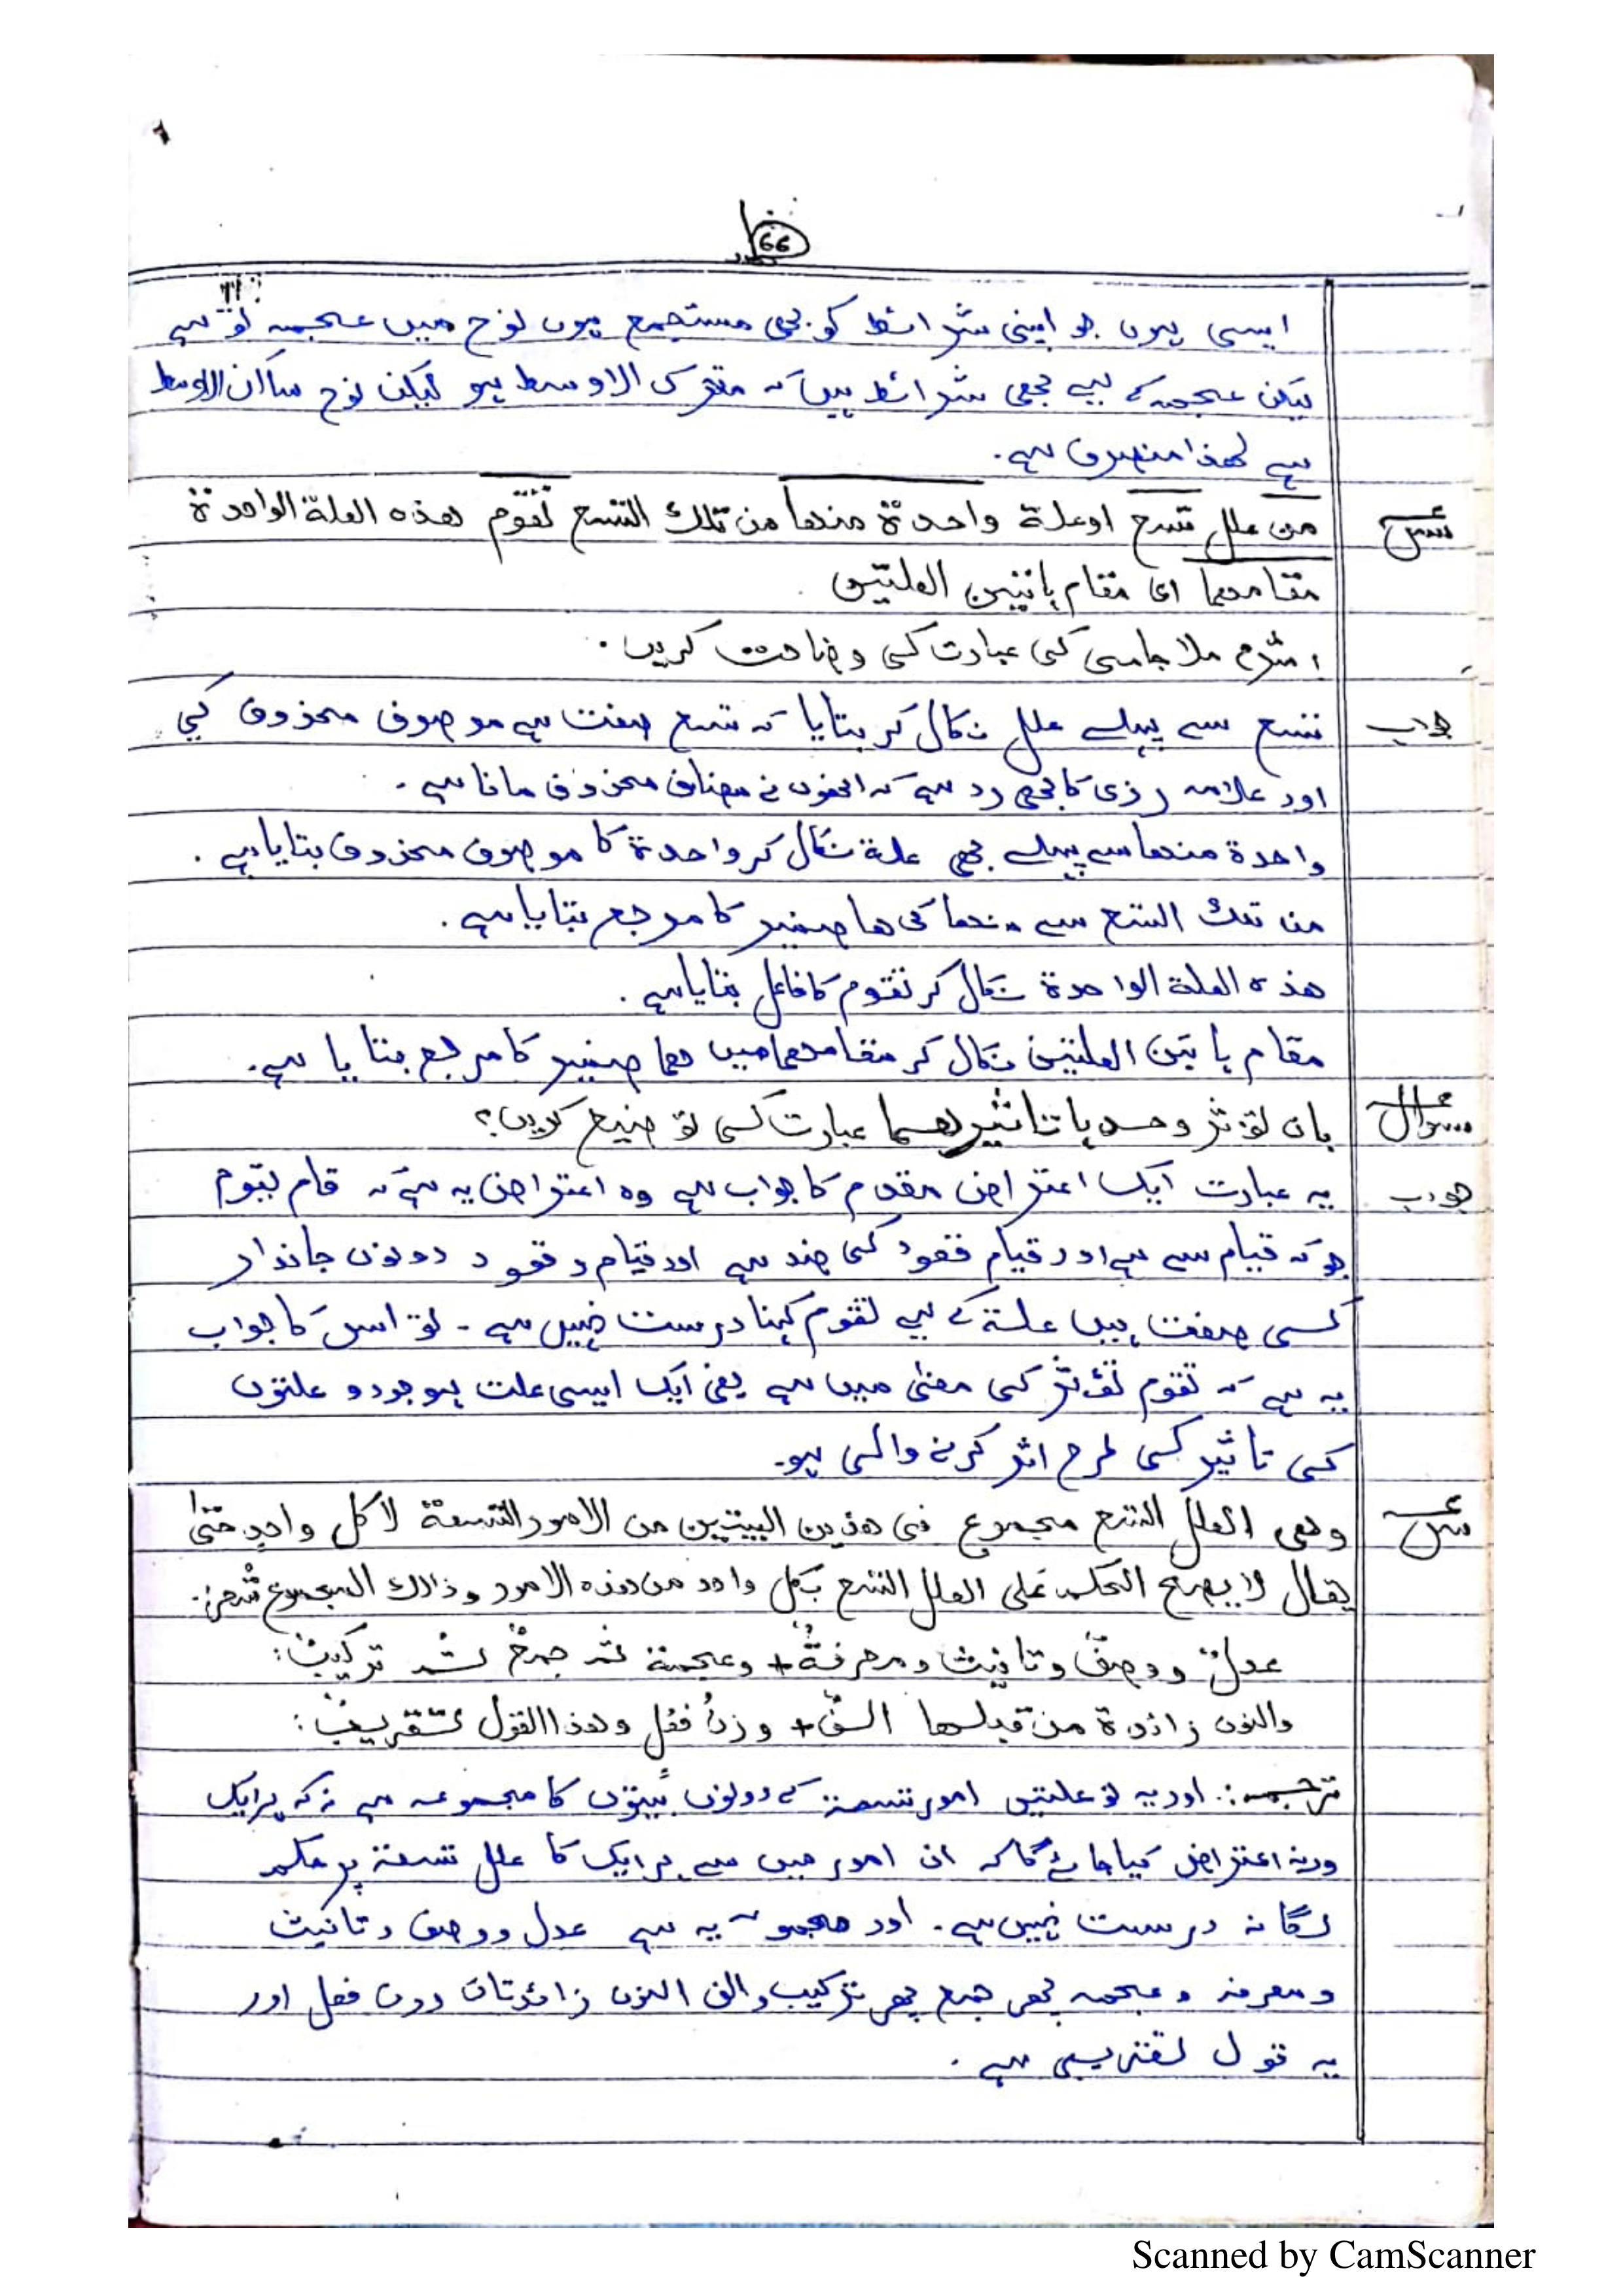 66
ایسی ہوں جو اپنی شرائط کو بھی مستجمع ہوں نوح میں عجمہ تو ہے
لیکن عجمہ کے لیے بھی شرائط ہیں کہ متحرک الاوسط ہو لیکن نوح ساکن الاوسط
ہے لھذا منصرف ہے۔
س من علل تسع او علة واحدة منها من تلك التسع تقوم هذه العلة الواحدة
مقامهما ای مقام ہاتین العلتین
شرح ملا جامی کی عبارت کی وضاحت کریں۔
جواب تسع سے پہلے علل نکال کر بتایا کہ تسع صفت ہے موصوف محذوف کی
اور علامہ رضی کا بھی رد ہے کہ انھوں نے مضاف محذوف مانا ہے۔
واحدة منھا سے پہلے بھی علة نکال کر واحدة کا موصوف محذوف بتایا ہے۔
من تلک التسع سے منھا کی ھا ضمیر کا مرجع بتایا ہے۔
ھذہ العلة الواحدة نکال کر تقوم کا فاعل بتایا ہے۔
مقام ہاتین العلتین نکال کر مقامھما میں ھما ضمیر کا مرجع بتایا ہے۔
سوال بان تؤثر وحدہا تاثیرھما عبارت کی توضیح کریں؟
جواب یہ عبارت ایک اعتراض مقدر کا جواب ہے وہ اعتراض یہ ہے کہ قام یقوم
جو کہ قیام سے ہے اور قیام قعود کی ضد ہے اور قیام و قعود دونوں جاندار
کی صفت ہیں علة کے لیے تقوم کہنا درست نہیں ہے۔ تو اس کا جواب
یہ ہے کہ تقوم تؤثر کی معنی میں ہے یعنی ایک ایسی علت ہو جو دو علتوں
کی تاثیر کی طرح اثر کرنے والی ہو۔
س وھی العلل التسع مجموع فی ھذین البیتین من الامور التسعة لا کل واحد حتی
یقال لا یصح الحکم علی العلل التسع بکل واحد من ھذہ الامور وذالک المجموع شعر:
عدلٌ ووصفٌ وتانیث ومعرفةٌ + وعجمة ثم جمعٌ ثم ترکیبٌ:
والنون زائدة من قبلھا الفٌ + وزنُ فعل وھذا القول تقریبٌ:
ترجمہ: اور یہ نو علتیں امور تسعة کے دونوں بیتوں کا مجموعہ ہے نہ کہ ہر ایک
ورنہ اعتراض کیا جائے گا کہ ان امور میں سے ہر ایک کا علل تسعة پر حکم
لگانہ درست نہیں ہے۔ اور مجموعہ یہ ہے عدل ووصف وتانیث
ومعرفہ وعجمہ پھر جمع پھر ترکیب والف النون زائدتان وزن فعل اور
یہ قول تقریبی ہے۔
Scanned by CamScanner